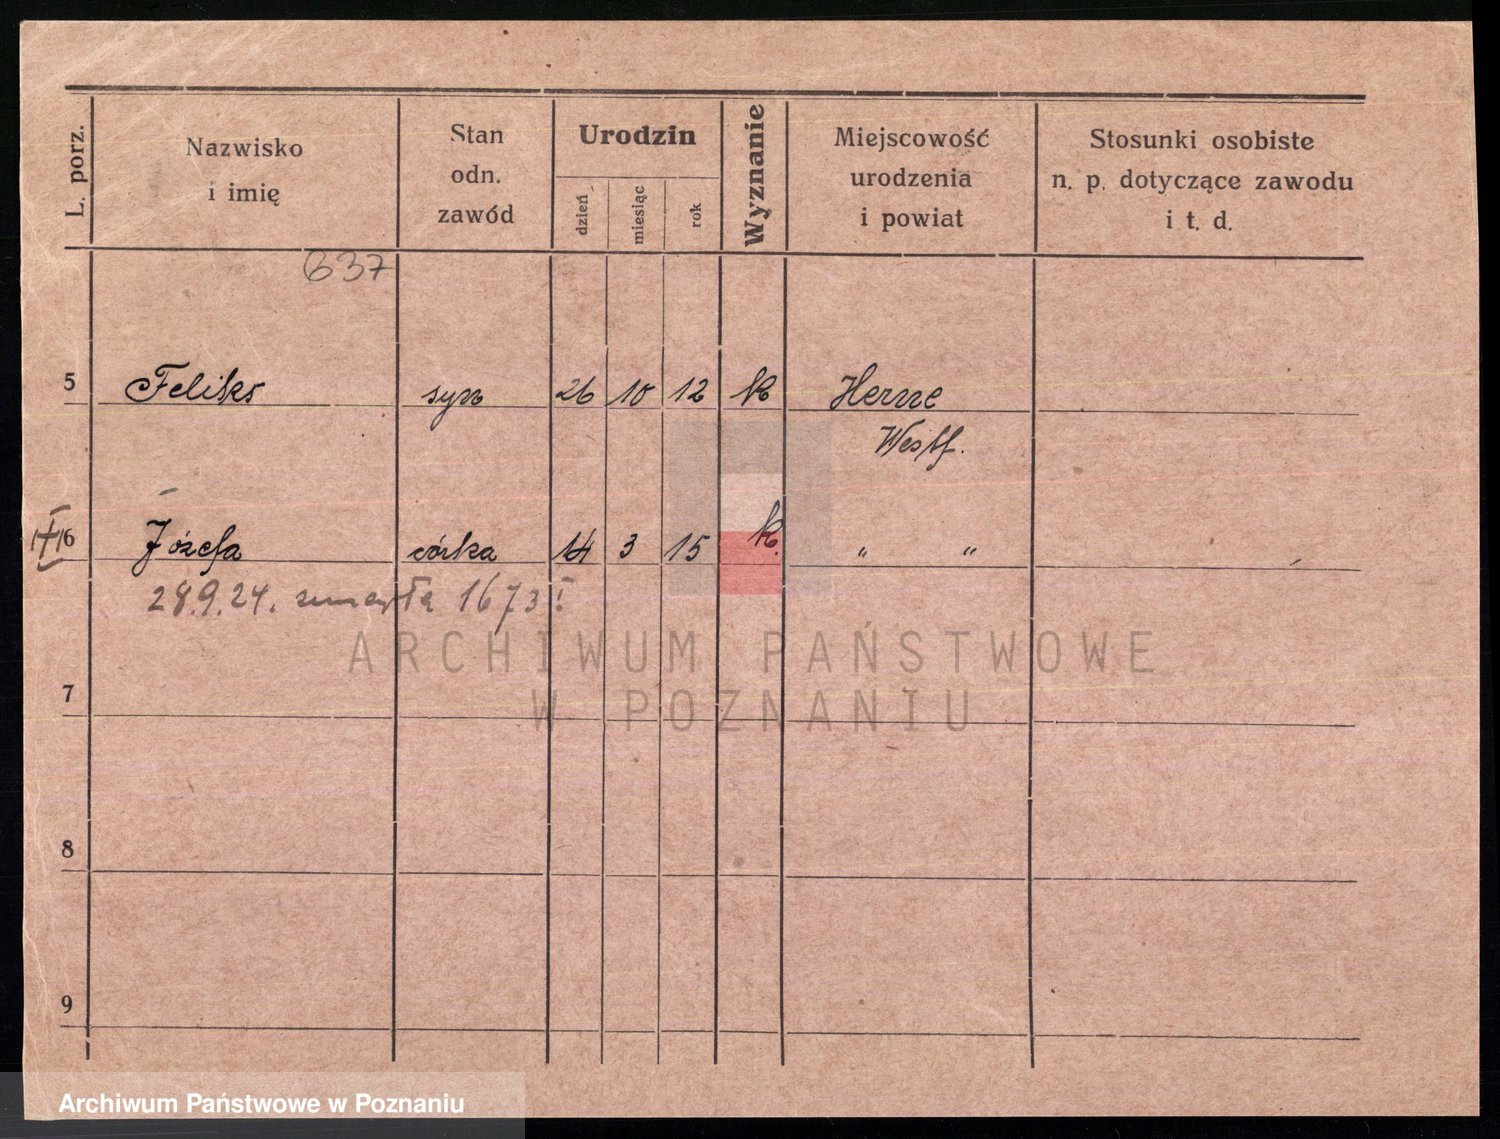 L. porz.
Nazwisko
i imię
Stan
odn.
zawód
Urodzin
dzień
miesiąc
rok
Wyznanie
Miejscowość
urodzenia
i powiat
Stosunki osobiste
n. p. dotyczące zawodu
i t. d.
637
5 Feliks syn 26 10 12 k Herne
Westf.
6 Józefa córka 14 3 15 k. " "
28.9.24. zmarła 1673 I
7
8
9
ARCHIWUM PAŃSTWOWE
W POZNANIU
Archiwum Państwowe w Poznaniu